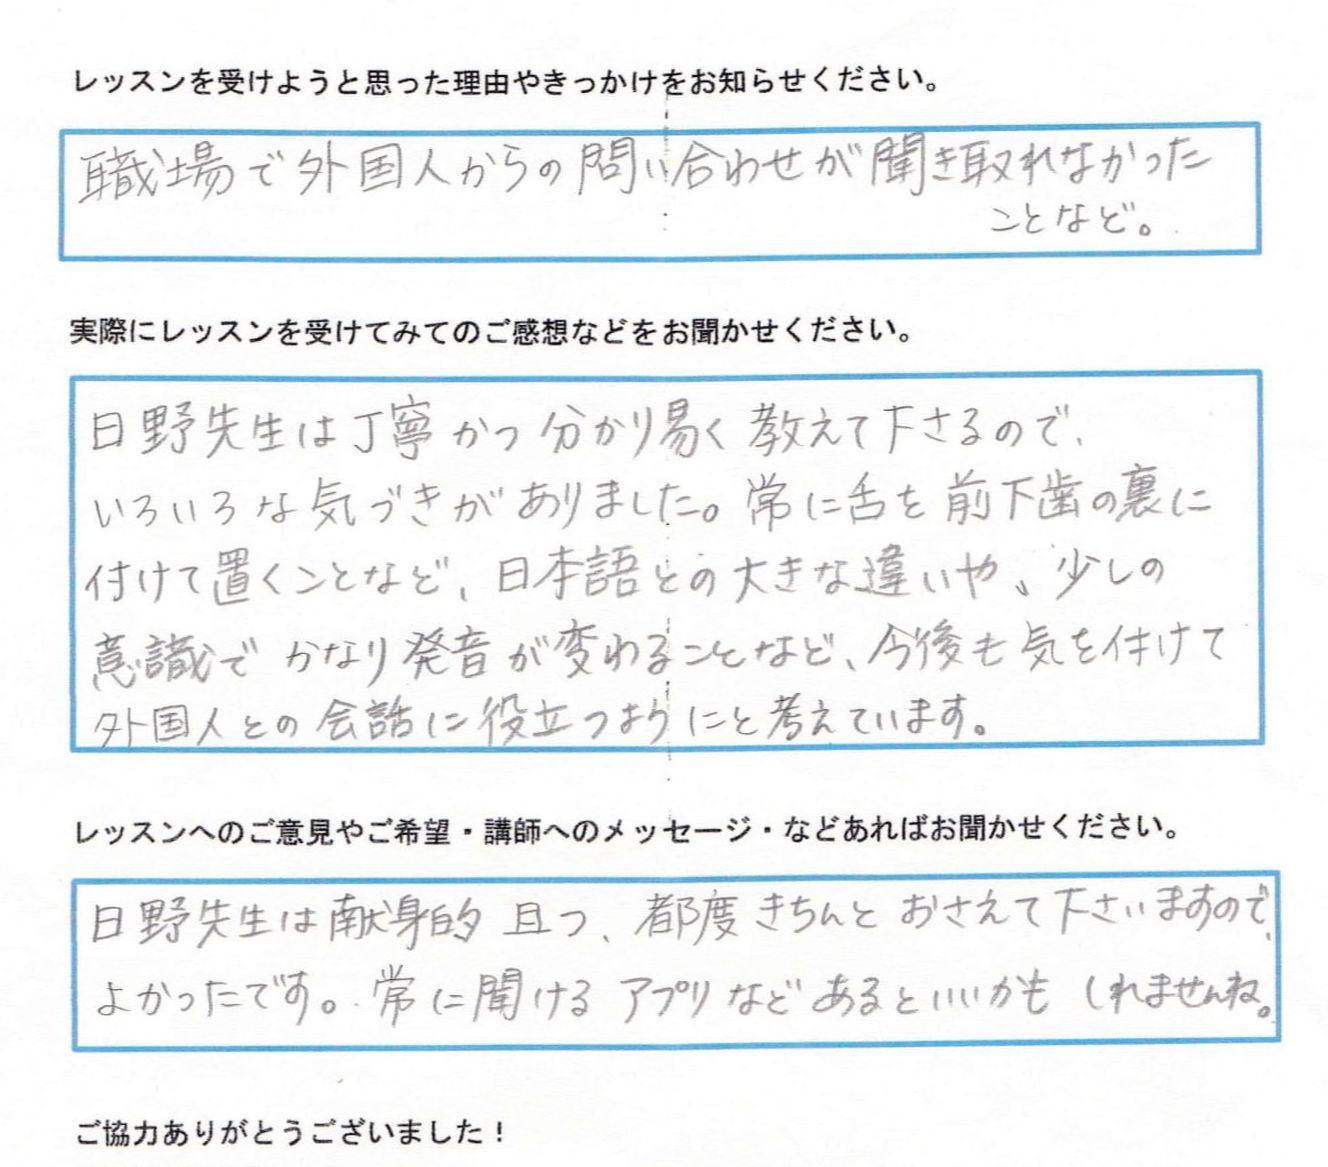 レッスンを受けようと思った理由やきっかけをお知らせください。
職場で外国人からの問い合わせが聞き取れなかった
ことなど。
実際にレッスンを受けてみてのご感想などをお聞かせください。
日野先生は丁寧かつ分かり易く教えて下さるので、
いろいろな気づきがありました。常に舌を前下歯の裏に
付けて置くことなど、日本語との大きな違いや、少しの
意識でかなり発音が変わることなど、今後も気を付けて
外国人との会話に役立つようにと考えています。
レッスンへのご意見やご希望・講師へのメッセージ・などあればお聞かせください。
日野先生は献身的且つ、都度きちんとおさえて下さいますので、
よかったです。常に聞けるアプリなどあるといいかもしれませんね。
ご協力ありがとうございました！